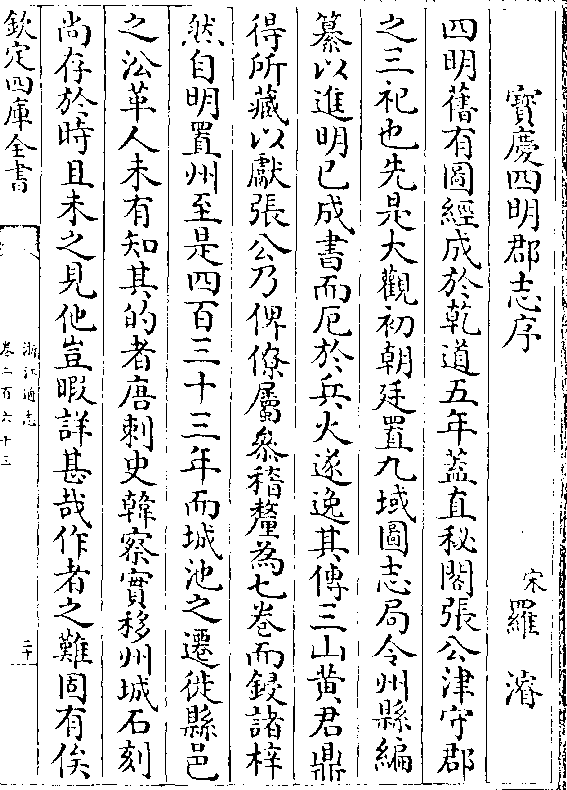 寶慶四明郡志序
宋羅濬
四明舊有圖經成於乾道五年蓋直秘閣張公津守郡
之三祀也先是大觀初朝廷置九域圖志局令州縣編
纂以進明已成書而厄於兵火遂逸其傳三山黄君鼎
得所藏以獻張公乃俾僚屬叅稽釐為七卷而鋟諸梓
然自明置州至是四百三十三年而城池之遷徙縣邑
之㳂革人未有知其的者唐刺史韓察實移州城石刻
尚存於時且未之見他豈暇詳甚哉作者之難固有俟
欽定四庫全書
浙江通志
卷二百六十三
二十